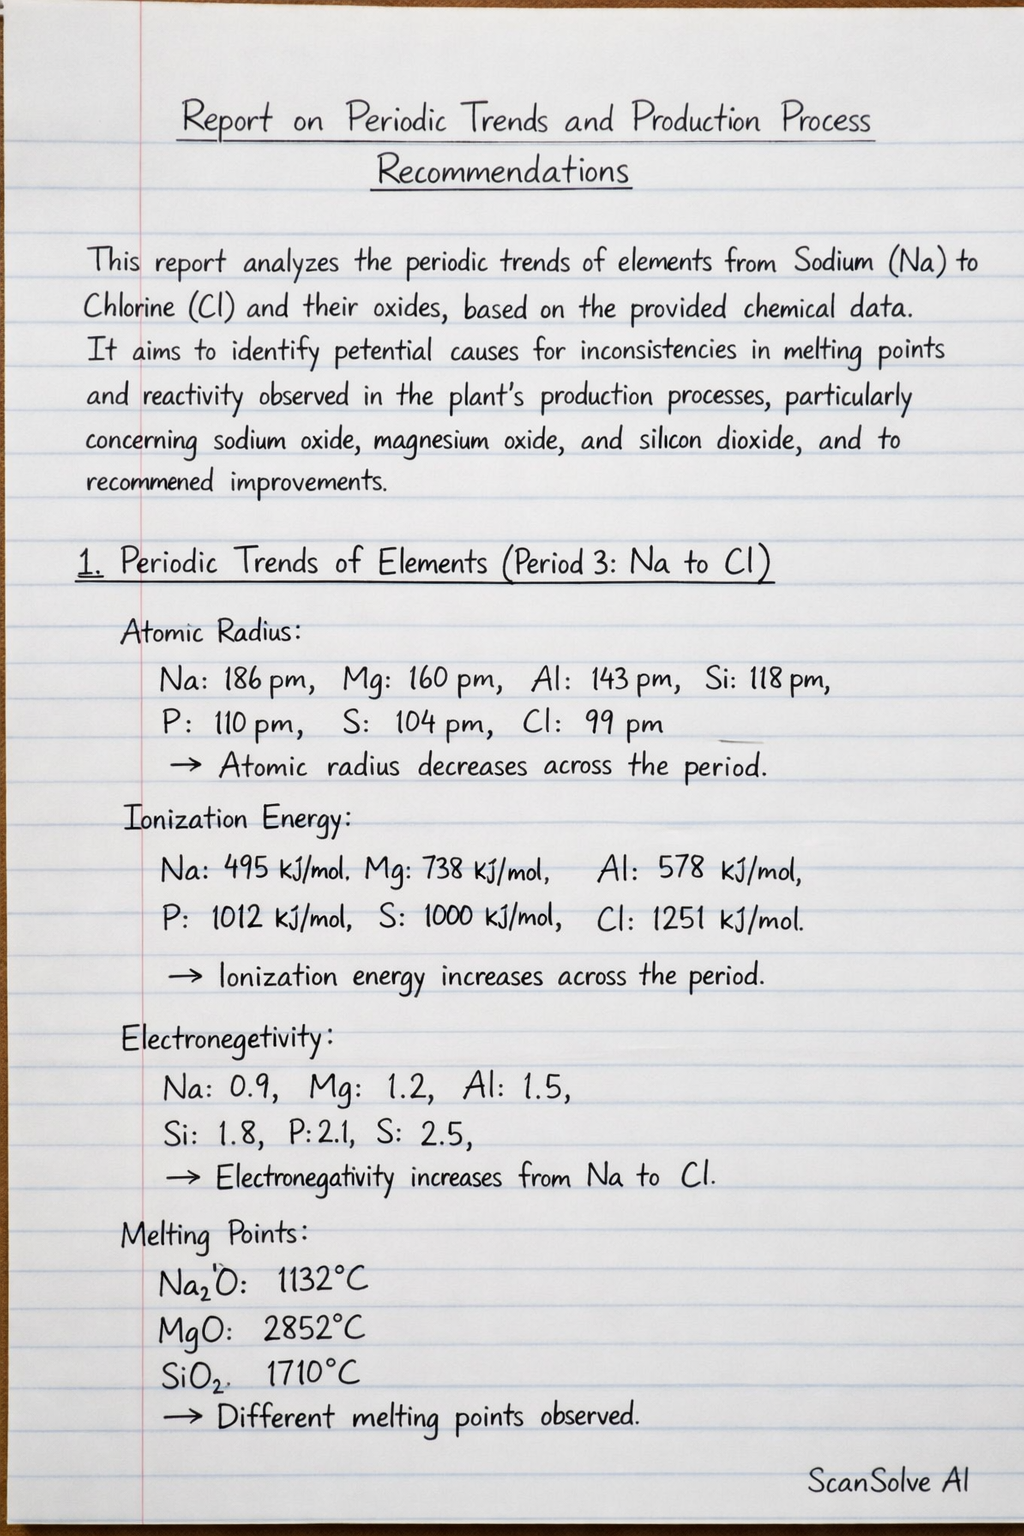 Report on Periodic Trends and Production Process
Recommendations
This report analyzes the periodic trends of elements from Sodium (Na) to
Chlorine (Cl) and their oxides, based on the provided chemical data.
It aims to identify petential causes for inconsistencies in melting points
and reactivity observed in the plant's production processes, particularly
concerning sodium oxide, magnesium oxide, and silicon dioxide, and to
recommened improvements.
1. Periodic Trends of Elements (Period 3: Na to Cl)
Atomic Radius:
Na: 186 pm, Mg: 160 pm, Al: 143 pm, Si: 118 pm,
P: 110 pm, S: 104 pm, Cl: 99 pm
→ Atomic radius decreases across the period.
Ionization Energy:
Na: 495 kJ/mol. Mg: 738 kJ/mol, Al: 578 kJ/mol,
P: 1012 kJ/mol, S: 1000 kJ/mol, Cl: 1251 kJ/mol.
→ Ionization energy increases across the period.
Electronegetivity:
Na: 0.9, Mg: 1.2, Al: 1.5,
Si: 1.8, P: 2.1, S: 2.5,
→ Electronegativity increases from Na to Cl.
Melting Points:
Na₂'O: 1132°C
MgO: 2852°C
SiO₂. 1710°C
→ Different melting points observed.
ScanSolve AI